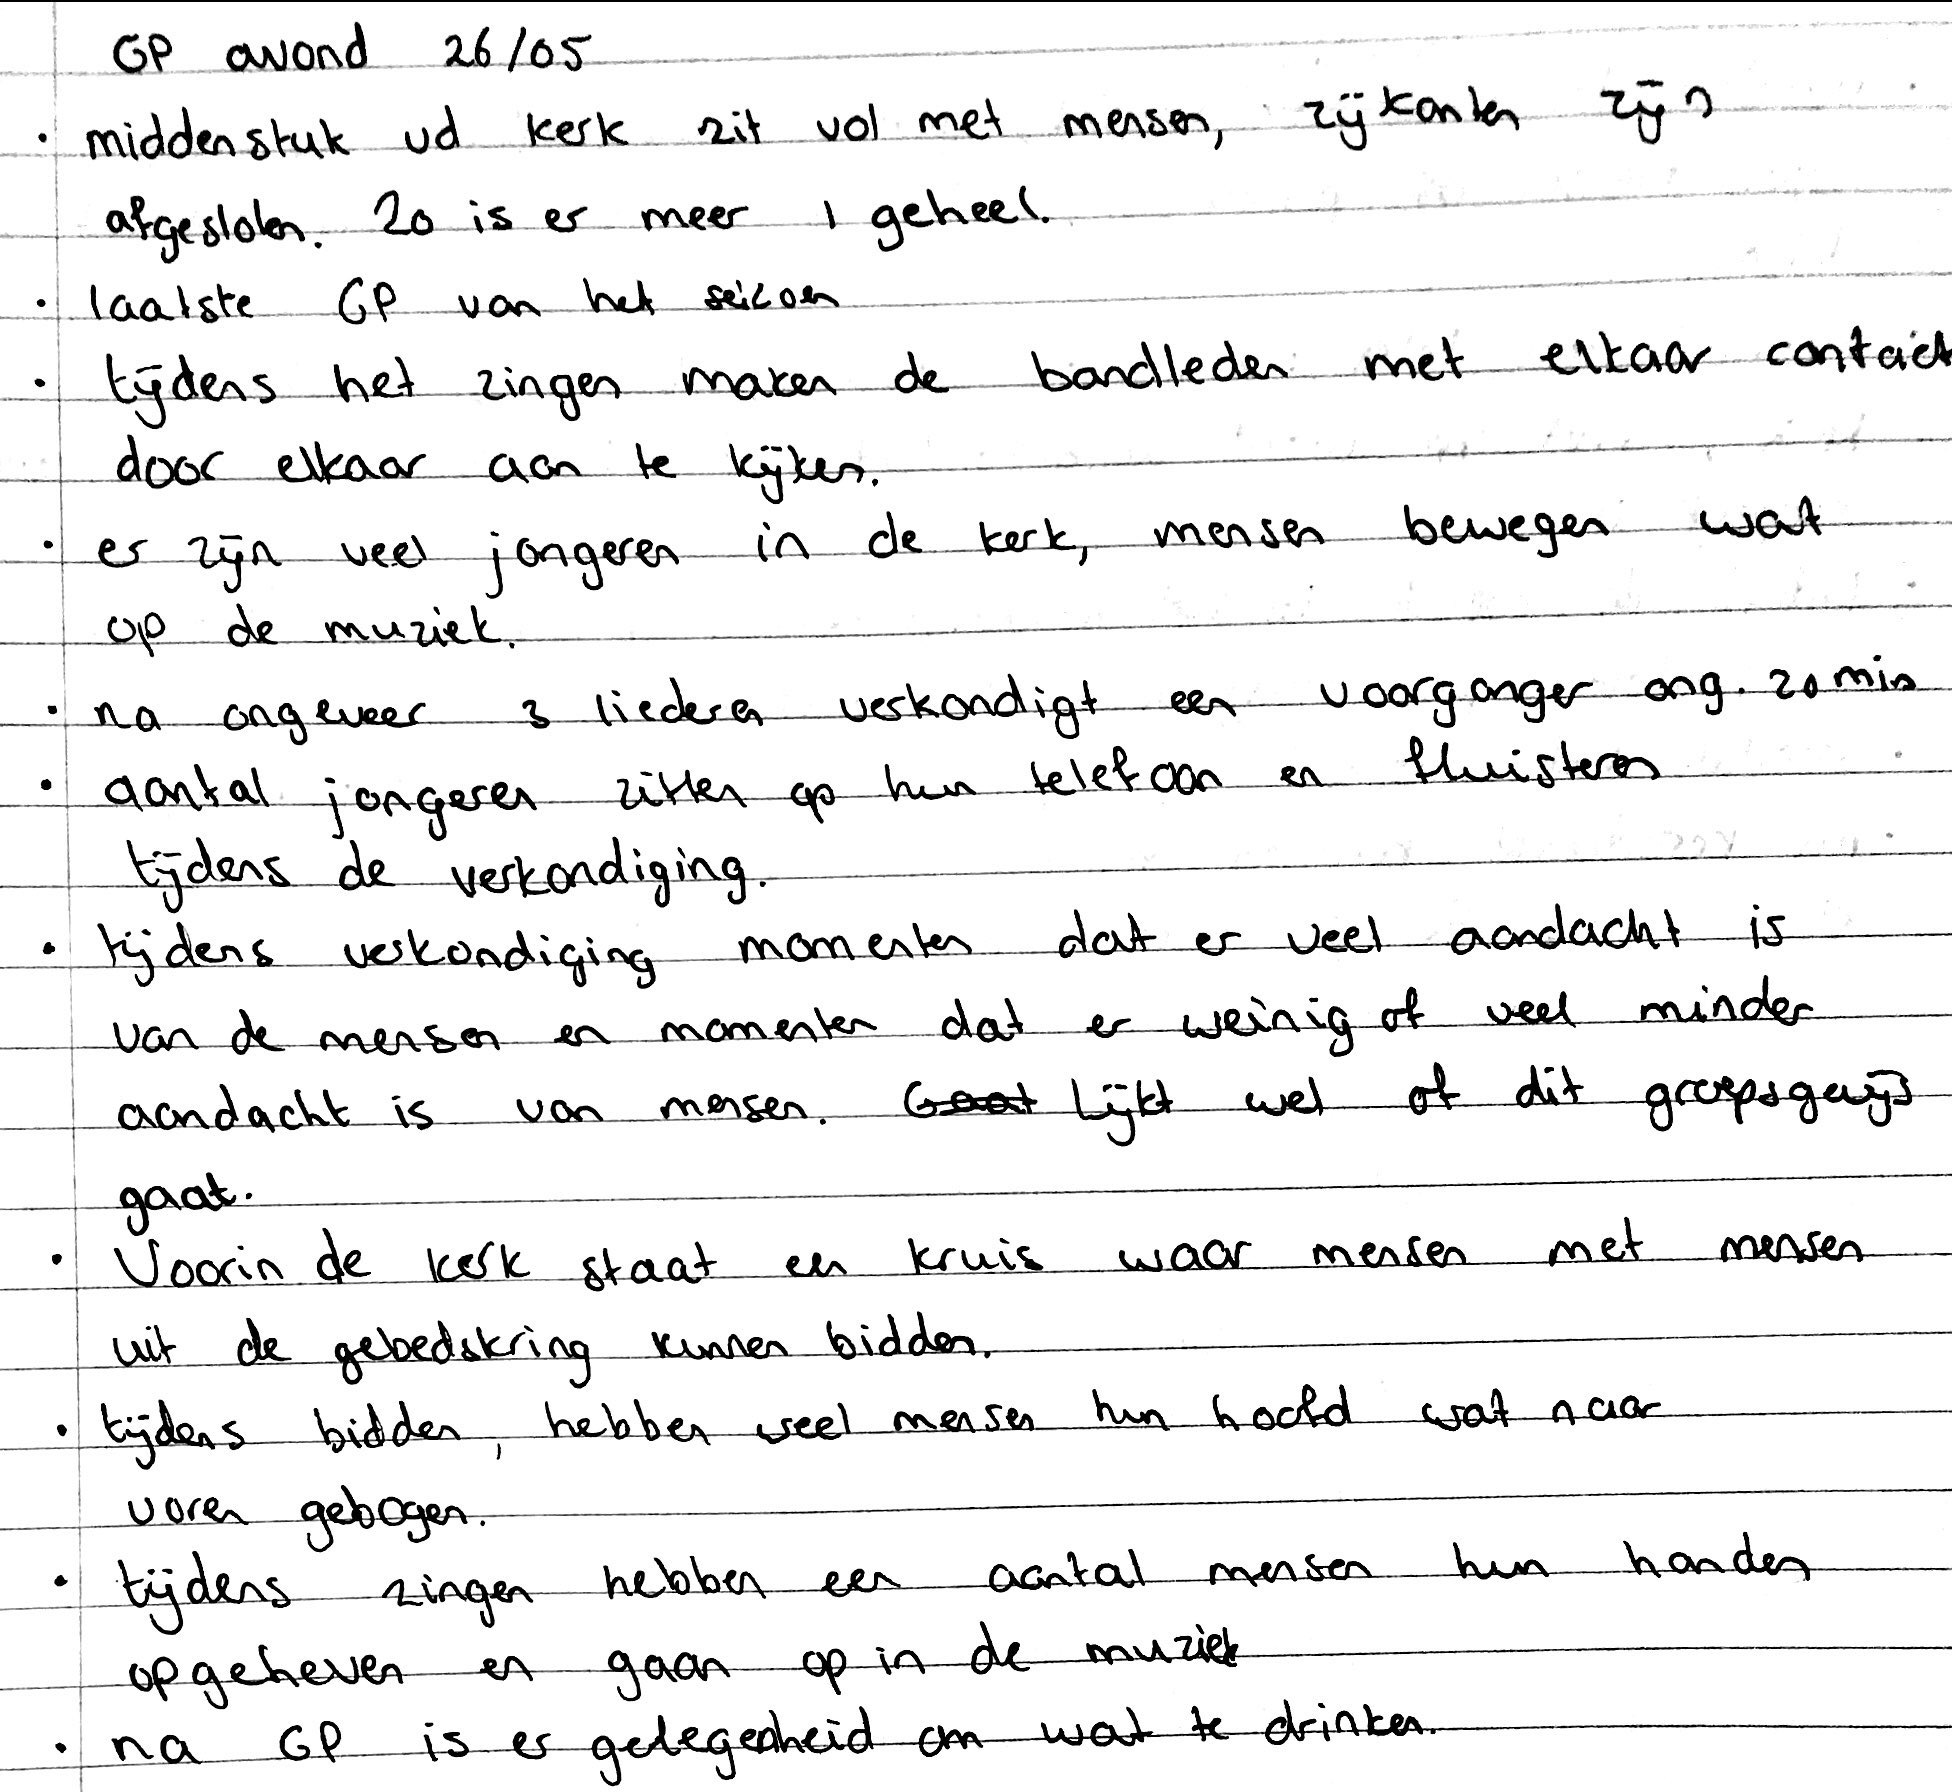 GP avond 26/05
• middenstuk vd kerk zit vol met mensen, zijkanten zijn
afgesloten. Zo is er meer 1 geheel.
• laatste GP van het seizoen
• tijdens het zingen maken de bandleden met elkaar contact
door elkaar aan te kijken.
• er zijn veel jongeren in de kerk, mensen bewegen wat
op de muziek.
• na ongeveer 3 liederen verkondigt een voorganger ong. 20 min
• aantal jongeren zitten op hun telefoon en fluisteren
tijdens de verkondiging.
• tijdens verkondiging momenten dat er veel aandacht is
van de mensen en momenten dat er weinig of veel minder
aandacht is van mensen. Gaat Lijkt wel of dit groepsgewijs
gaat.
• Voorin de kerk staat een kruis waar mensen met mensen
uit de gebedskring kunnen bidden.
• tijdens bidden, hebben veel mensen hun hoofd wat naar
voren gebogen.
• tijdens zingen hebben een aantal mensen hun handen
opgeheven en gaan op in de muziek
• na GP is er gelegenheid om wat te drinken.